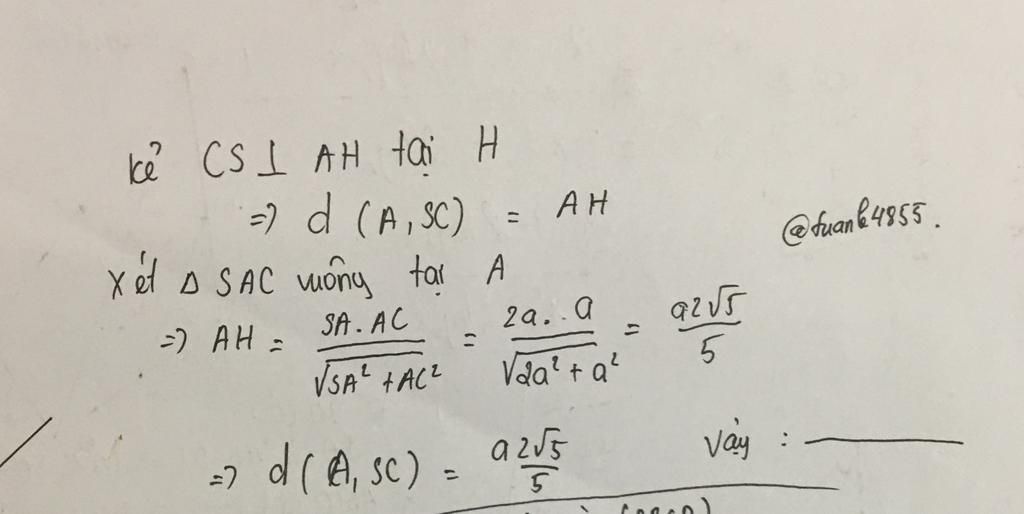 kẻ CS ⊥ AH tại H
=> d (A, SC) = AH
@tuanh4855.
Xét Δ SAC vuông tại A
=> AH = SA.AC / √SA² + AC² = 2a..a / √2a² + a² = a2√5 / 5
=> d (A, SC) = a2√5 / 5
Vậy :